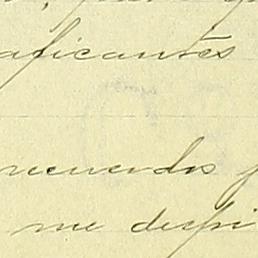 aficantes
recuerdos
me despi